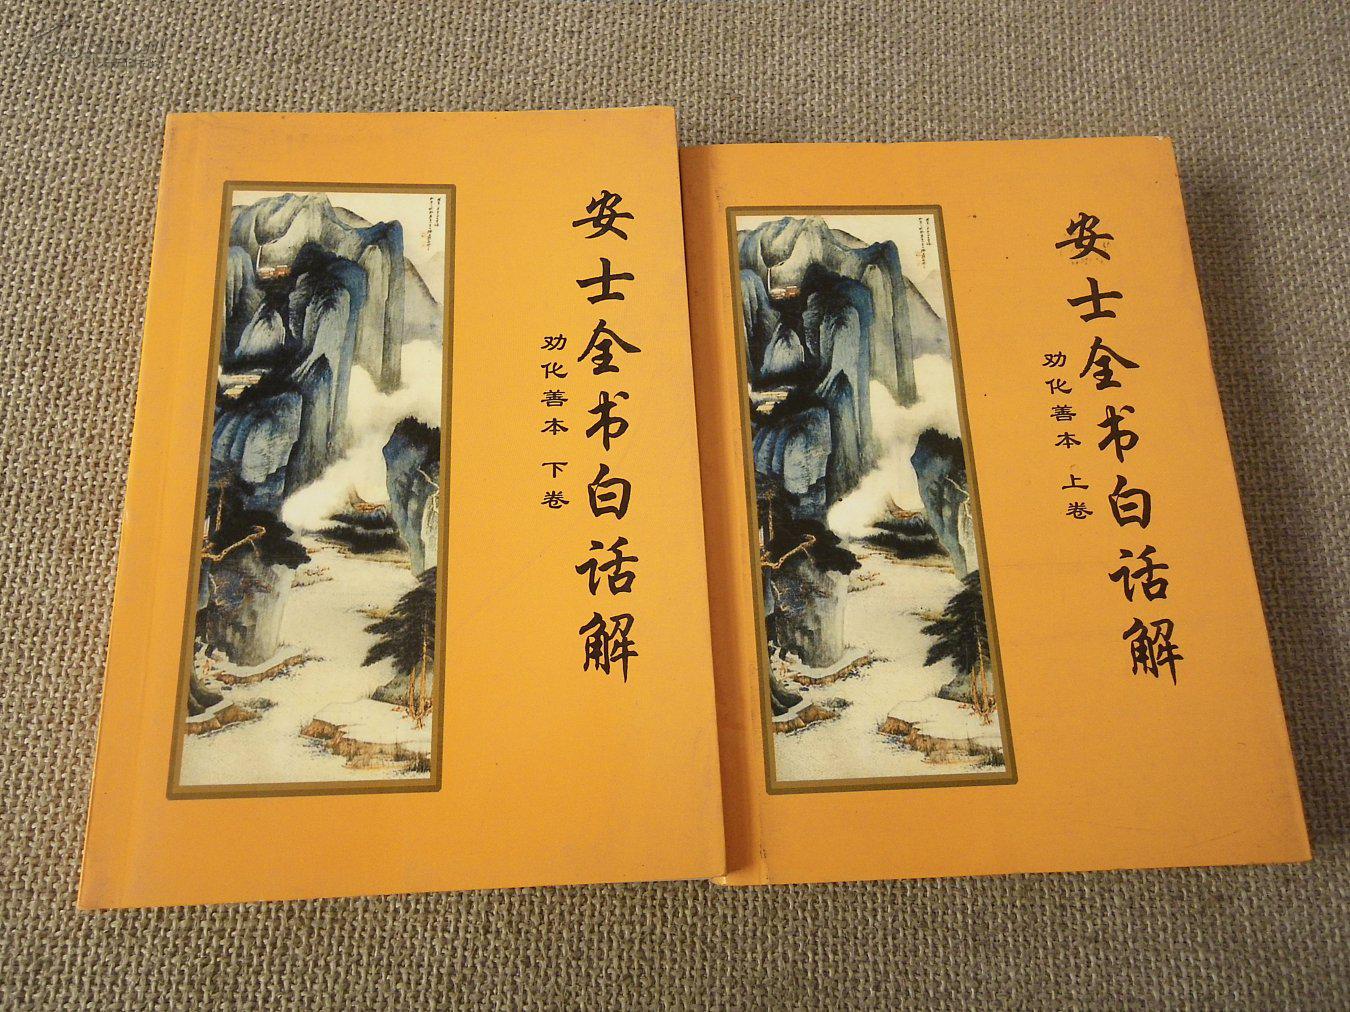 安士全书白话解
劝化善本 下卷
安士全书白话解
劝化善本 上卷